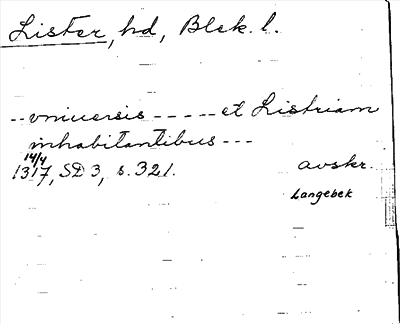 Lister, hd, Blek. l.
-- vniuersis ----- et Listriam
inhabitantibus ---
14/4
1317, SD 3, s. 321. avskr.
Langebek